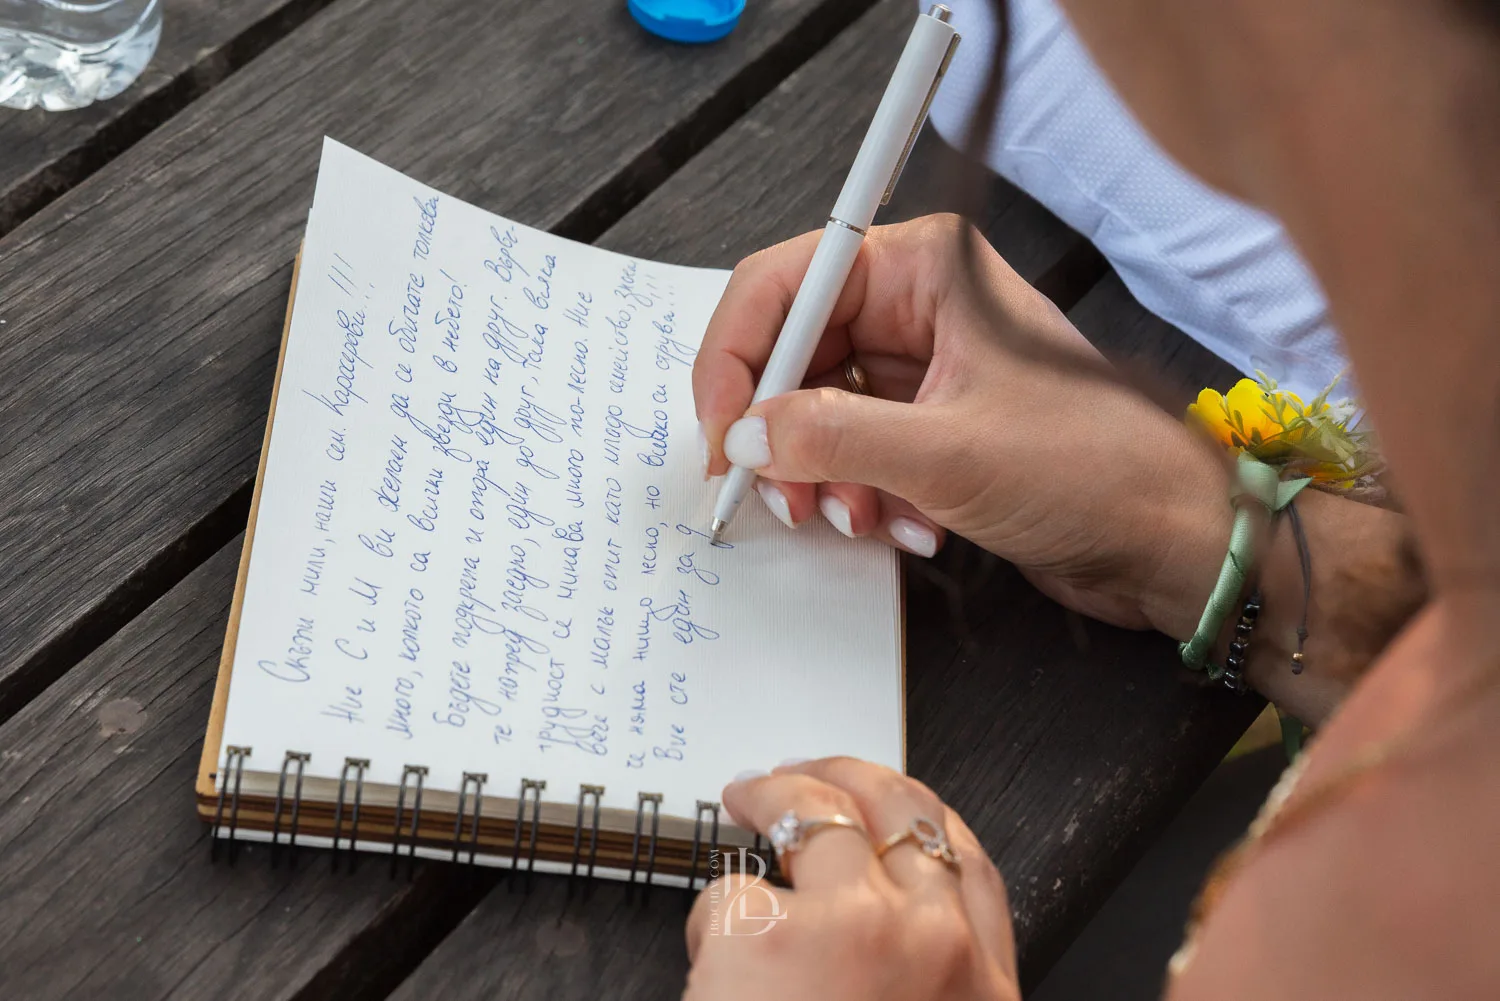 Скъпи мили, наши сем. Карасерови!!!
Ние С и М ви желаем да се обичате толкова
много, колкото са всички звезди в небето!
Бъдете подкрепа и опора един на друг. Върве-
те напред заедно, един до друг, така всяка
трудност се минава много по-лесно. Ние
вече с малък опит като младо семейство, знаем,
че няма нищо лесно, но всичко си струва!!!
Вие сте един за
LBOCHEV.COM